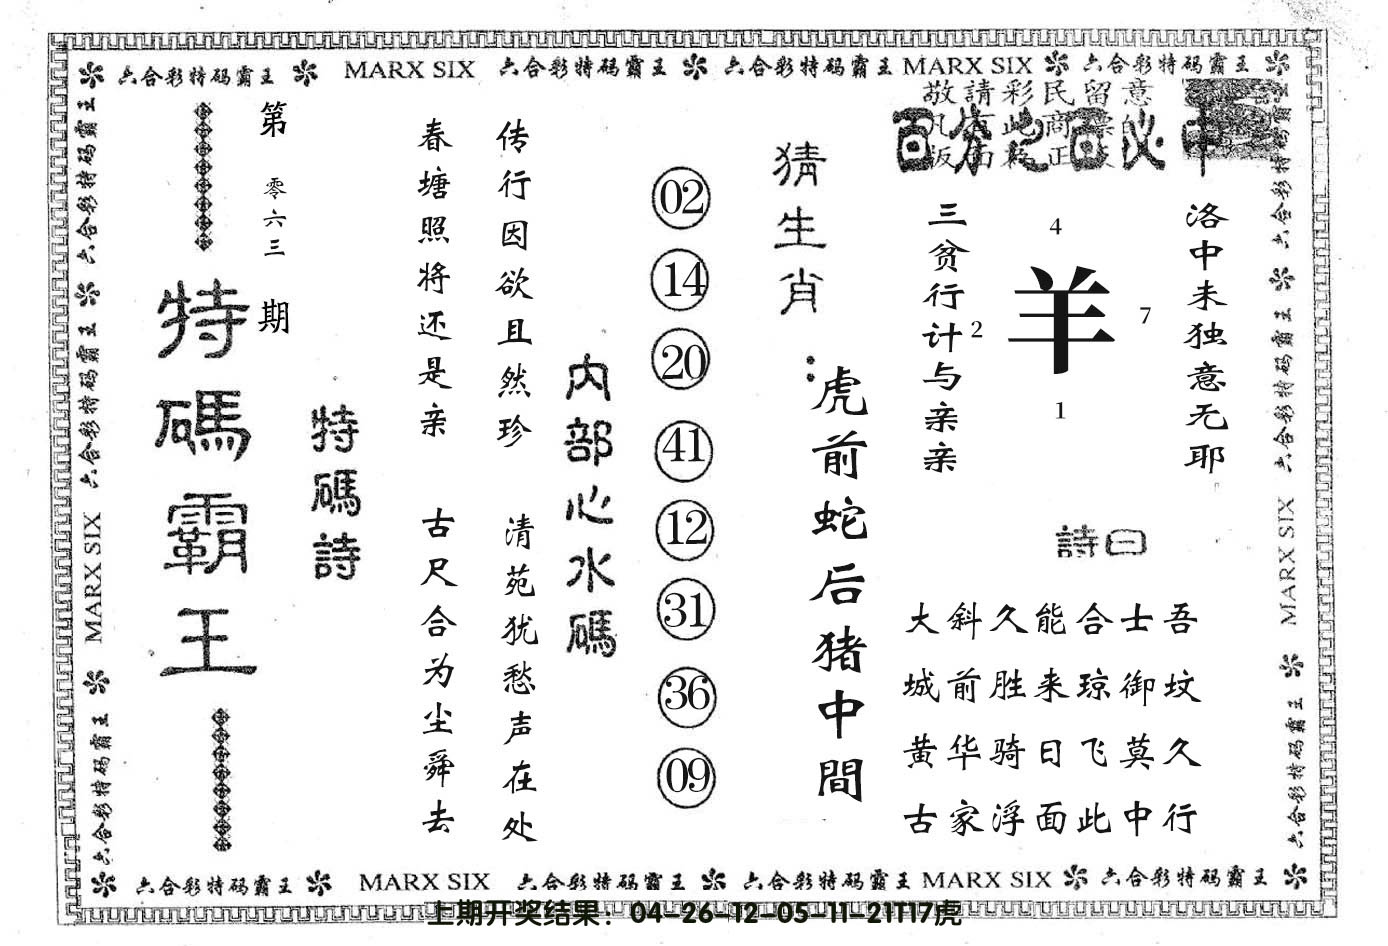 六合彩特码霸王 MARX SIX 六合彩特码霸王 六合彩特码霸王 MARX SIX 六合彩特码霸王
敬請彩民留意
百分之百必中
第零六三期
特碼霸王
特碼詩
春塘照将还是亲
古尺合为尘舜去
传行因欲且然珍
清苑犹愁声在处
内部心水碼
02
14
20
41
12
31
36
09
猜生肖:
虎前蛇后猪中間
三贫行计与亲亲
4
2
羊
7
1
洛中未独意无耶
詩曰
大斜久能合士吾
城前胜来琼御坟
黄华骑日飞莫久
古家浮面此中行
六合彩特码霸王 六合彩特码霸王 MARX SIX 六合彩特码霸王
六合彩特码霸王 六合彩特码霸王 MARX SIX 六合彩特码霸王
六合彩特码霸王 MARX SIX 六合彩特码霸王 六合彩特码霸王 MARX SIX 六合彩特码霸王
上期开奖结果：04-26-12-05-11-21T17虎